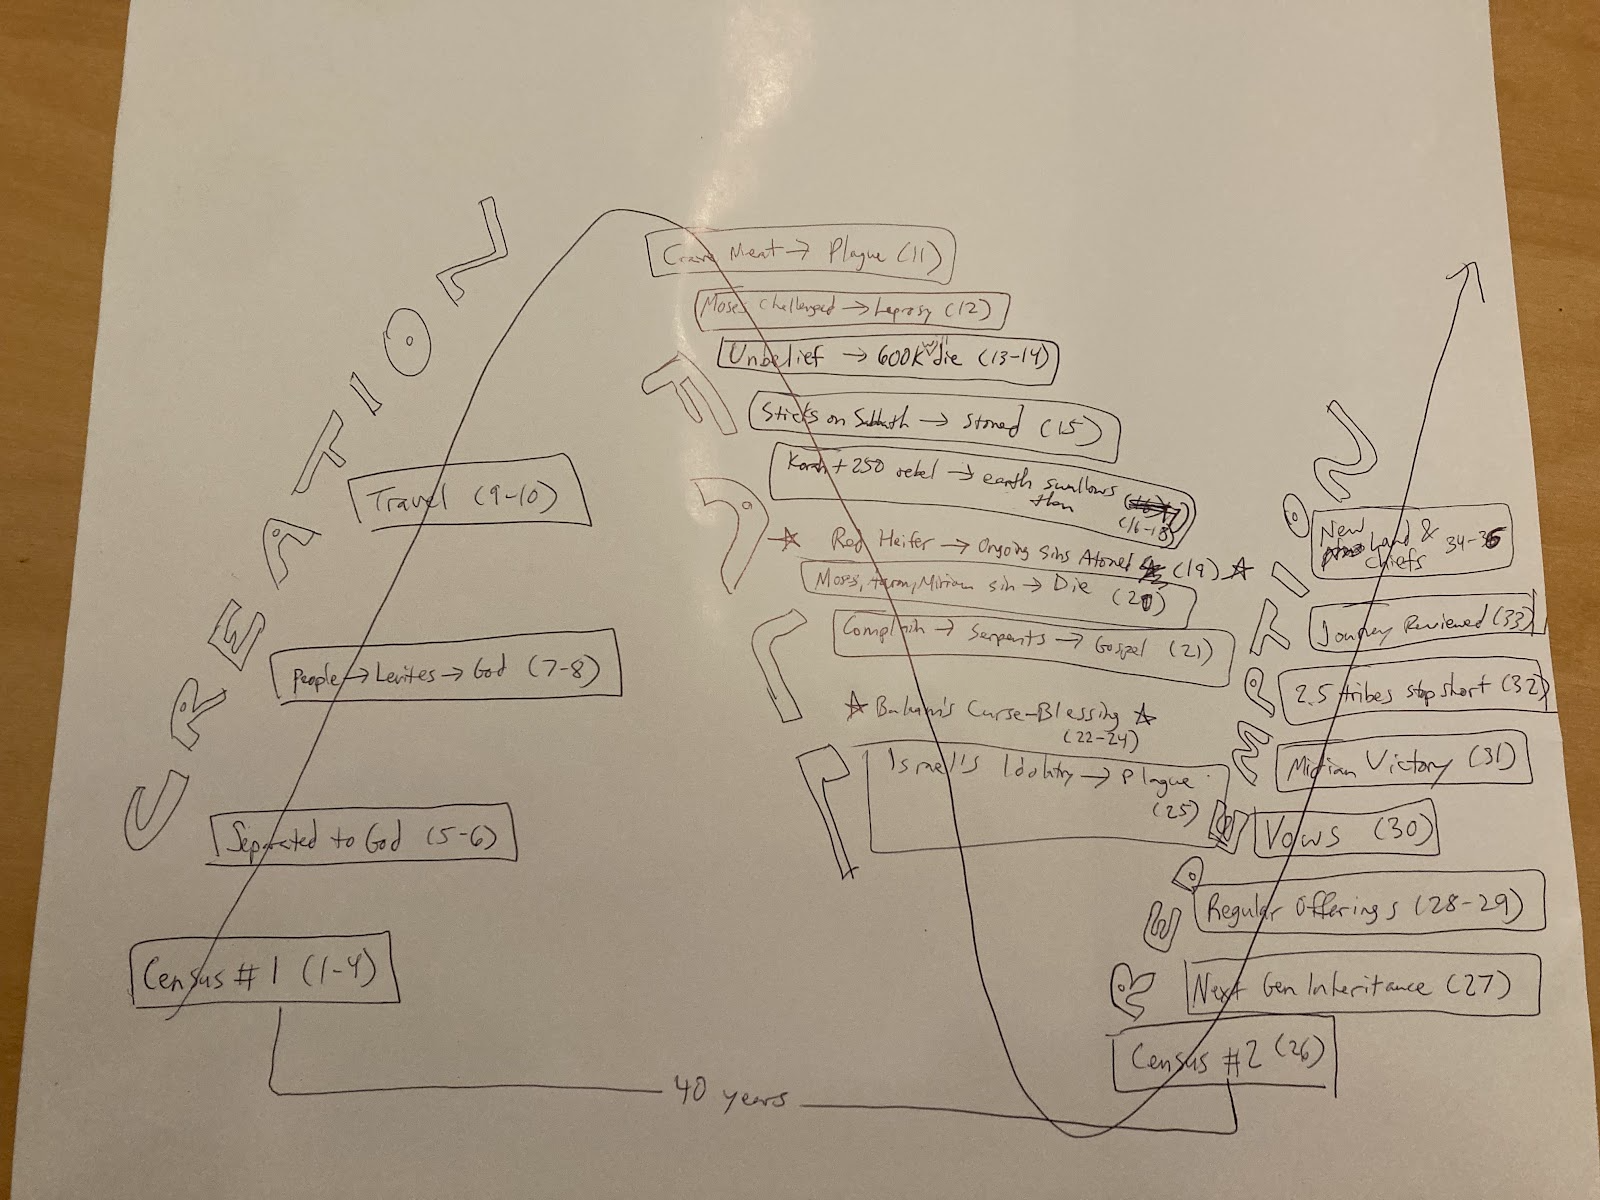 CREATION
Travel (9-10)
People → Levites → God (7-8)
Separated to God (5-6)
Census #1 (1-4)
40 years
FALL
Crave Meat → Plague (11)
Moses Challenged → Leprosy (12)
Unbelief → 600K die (13-14)
Sticks on Sabbath → Stoned (15)
Korah + 250 rebel → earth swallows
them
(16-18)
☆ Red Heifer → Ongoing Sins Atoned (19) ☆
Moses, Aaron, Miriam sin → Die
(20)
Complain → Serpents → Gospel (21)
☆ Balaam's Curse-Blessing ☆
(22-24)
Israel's Idolatry → Plague
(25)
REDEMPTION
New
Land & 34-36
Chiefs
Journey Reviewed (33)
2.5 tribes stop short (32)
Midian Victory (31)
Vows (30)
Regular Offerings (28-29)
Next Gen Inheritance (27)
Census #2 (26)